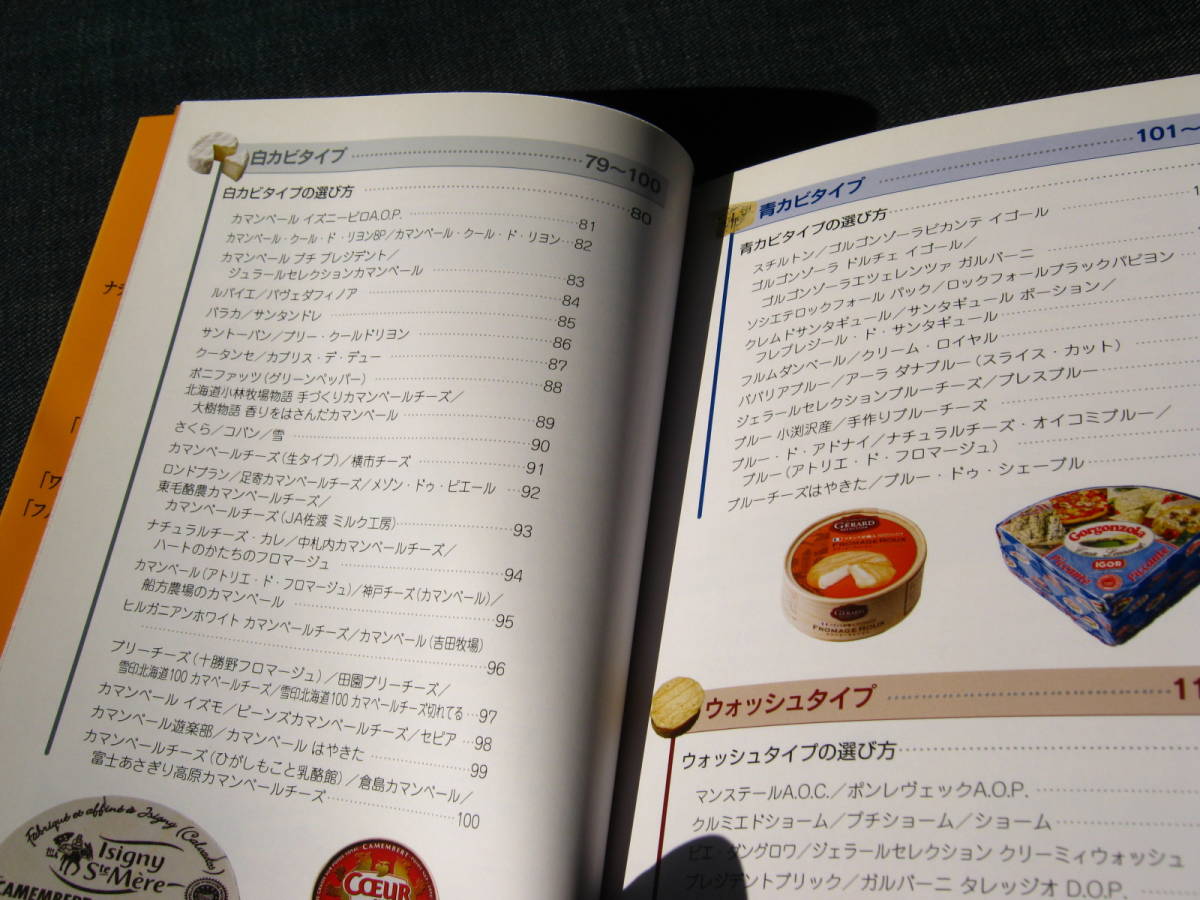 白カビタイプ 79〜100
白カビタイプの選び方 80
カマンベール イズニーピロA.O.P. 81
カマンベール・クール・ド・リヨンBP/カマンベール・クール・ド・リヨン 82
カマンベール プチ プレジデント/
ジェラールセレクションカマンベール 83
ルパイエ/パヴェダフィノア 84
バラカ/サンタンドレ 85
サントーバン/ブリー・クールドリヨン 86
クータンセ/カプリス・デ・デュー 87
ボニファッツ(グリーンペッパー) 88
北海道小林牧場物語 手づくりカマンベールチーズ/
大樹物語 香りをはさんだカマンベール 89
さくら/コバン/雪 90
カマンベールチーズ(生タイプ)/横市チーズ 91
ロンドブラン/足寄カマンベールチーズ/メゾン・ドゥ・ピエール 92
東毛酪農カマンベールチーズ/
カマンベールチーズ(JA佐渡 ミルク工房) 93
ナチュラルチーズ・カレ/中札内カマンベールチーズ/
ハートのかたちのフロマージュ 94
カマンベール(アトリエ・ド・フロマージュ)/神戸チーズ(カマンベール)/
船方農場のカマンベール 95
ヒルガニアンホワイト カマンベールチーズ/カマンベール(吉田牧場)
96
ブリーチーズ(十勝野フロマージュ)/田園ブリーチーズ/
雪印北海道100 カマンベールチーズ/雪印北海道100 カマンベールチーズ切れてる 97
カマンベール イズモ/ビーンズカマンベールチーズ/セピア 98
カマンベール遊楽部/カマンベール はやきた 99
カマンベールチーズ(ひがしもこと乳酪館)/倉島カマンベール/
富士あさぎり高原カマンベールチーズ 100
Fabriqué et affiné à Isigny (Calvados)
Isigny
Ste Mère
CAMEMBERT
CAMEMBERT
CŒUR
青カビタイプ 101〜
青カビタイプの選び方
スチルトン/ゴルゴンゾーラピカンテ イゴール
ゴルゴンゾーラ ドルチェ イゴール/
ゴルゴンゾーラエツェレンツァ ガルバーニ
ソシエテロックフォール パック/ロックフォールブラックパピヨン
クレムドサンタギュール/サンタギュール ポーション/
フレブレジール・ド・サンタギュール
フルムダンベール/クリーム・ロイヤル
ババリアブルー/アーラ ダナブルー(スライス・カット)
ジェラールセレクションブルーチーズ/ブレスブルー
ブルー 小渕沢産/手作りブルーチーズ
ブルー・ド・アドナイ/ナチュラルチーズ・オイコミブルー/
ブルー(アトリエ・ド・フロマージュ)
ブルーチーズはやきた/ブルー・ドゥ・シェーブル
GÉRARD
FROMAGE ROUX
GÉRARD
FROMAGE ROUX
Gorgonzola
IGOR
Piccante
Piccante
ウォッシュタイプ 11
ウォッシュタイプの選び方
マンステールA.O.C./ポンレヴェックA.O.P.
クルミエドショーム/プチショーム/ショーム
ピエ・ダングロワ/ジェラールセレクション クリーミィウォッシュ
プレジデントブリック/ガルバーニ タレッジオ D.O.P.